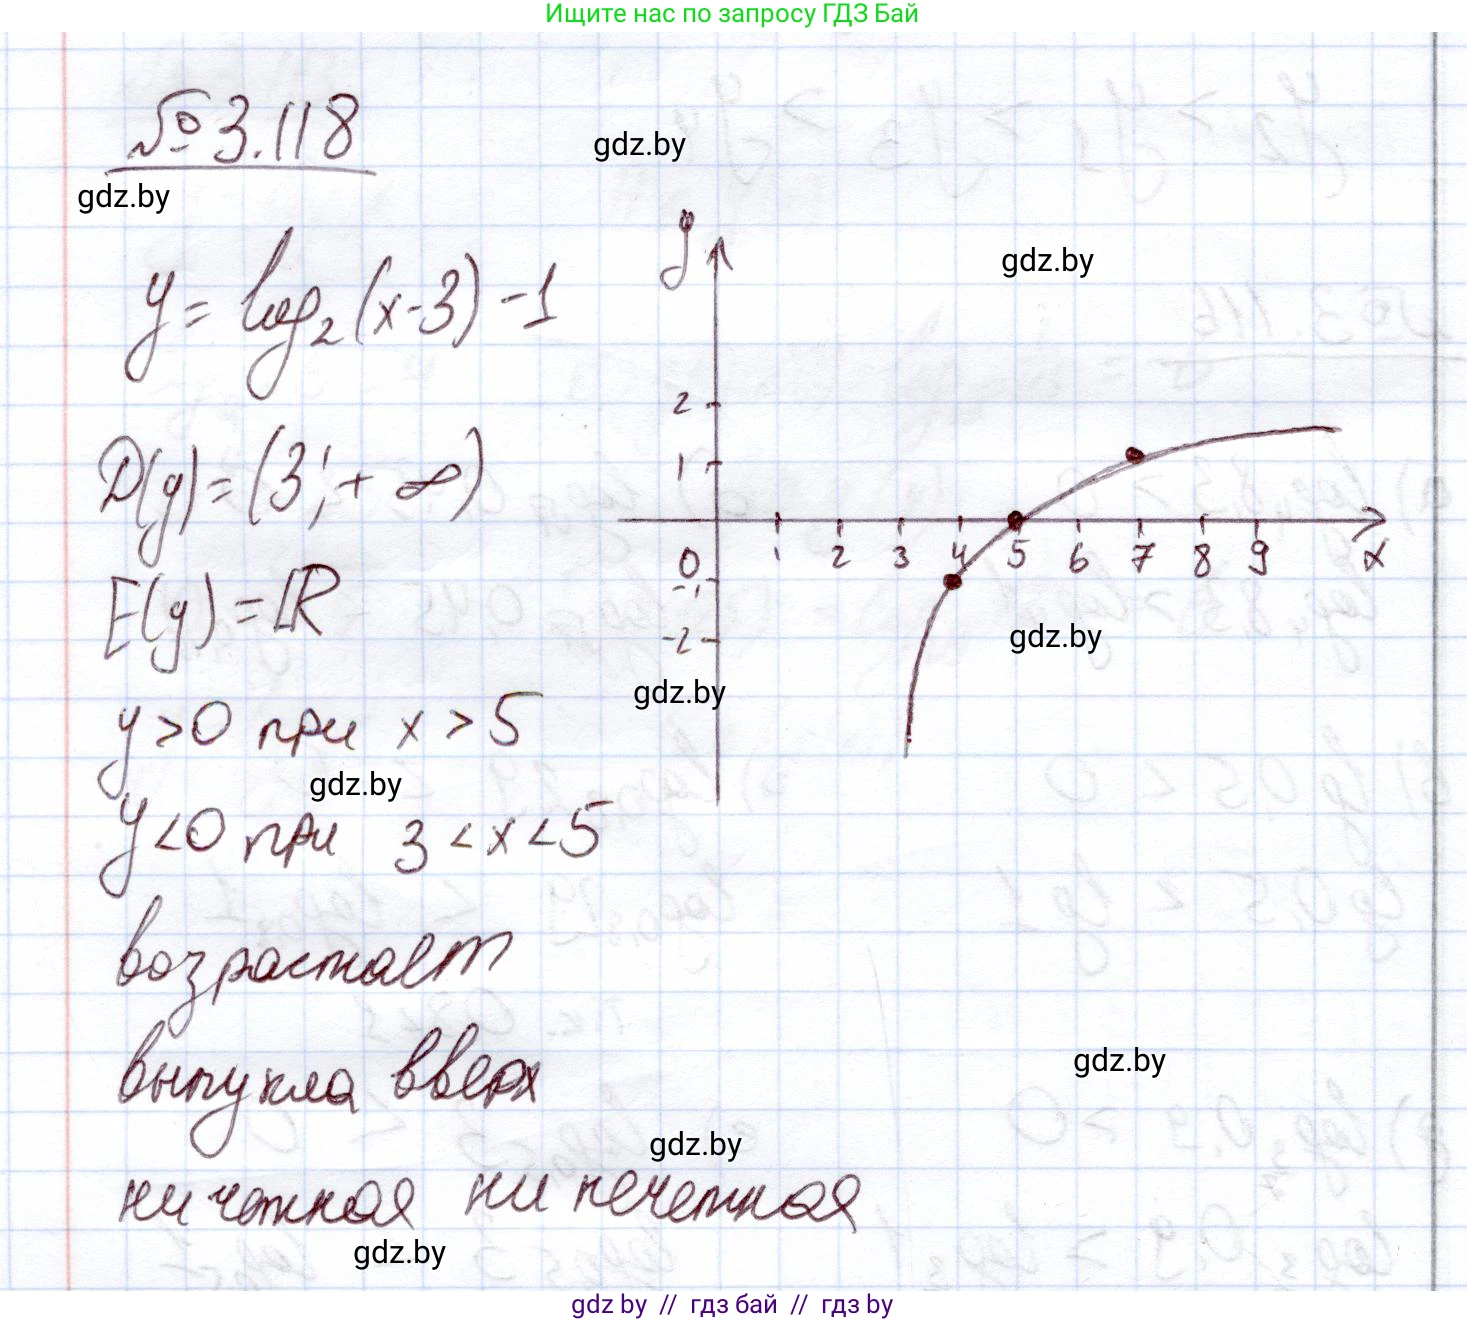 Ищите нас по запросу ГДЗ Бай
№ 3.118
gdz.by
gdz.by
y = log₂(x-3) -1
gdz.by
y
2
1
0 1 2 3 4 5 6 7 8 9 x
-1
-2
D(y) = (3; + ∞)
E(y) = ℝ
gdz.by
gdz.by
y > 0 при x > 5
gdz.by
y < 0 при 3 < x < 5
возрастает
выпукла вверх
gdz.by
gdz.by
ни четная ни нечетная
gdz.by
gdz by // гдз бай // гдз by